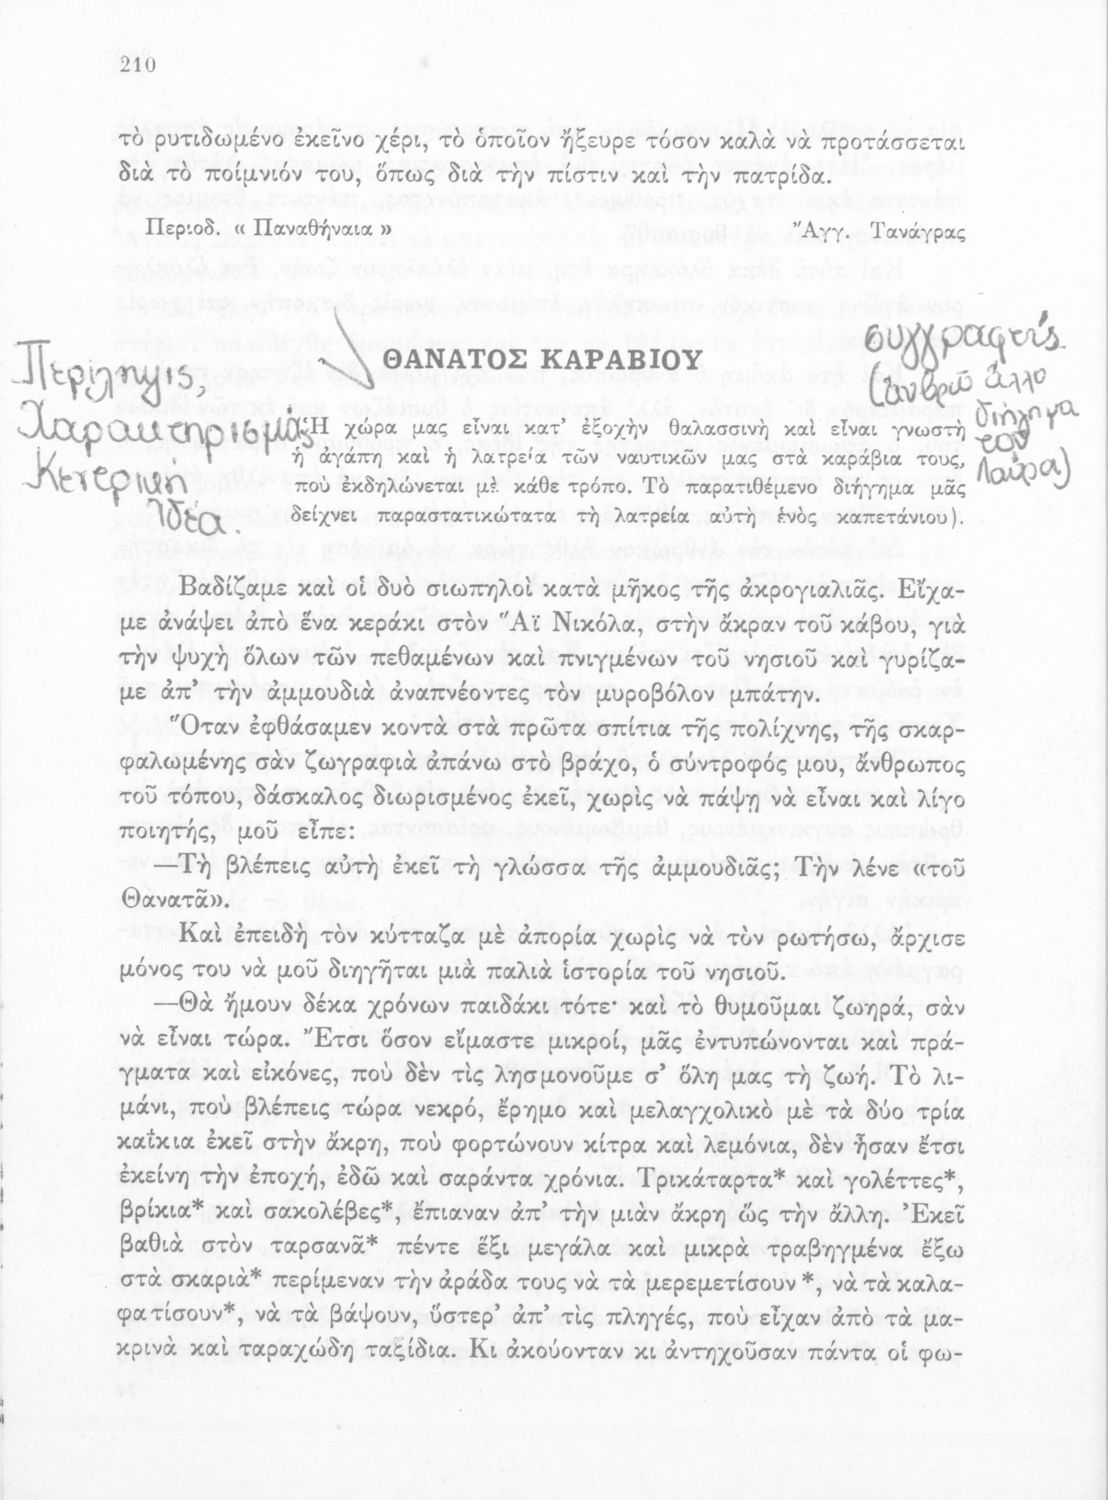 210
τὸ ρυτιδωμένο ἐκεῖνο χέρι, τὸ ὁποῖον ἤξευρε τόσον καλὰ νὰ προτάσσεται
διὰ τὸ ποίμνιόν του, ὅπως διὰ τὴν πίστιν καὶ τὴν πατρίδα.
Περιοδ. « Παναθήναια » Ἄγγ. Τανάγρας
ΘΑΝΑΤΟΣ ΚΑΡΑΒΙΟΥ
Περίληψις,
Χαρακτηρισμός
Κεντρική
Ἰδέα.
συγγραφεύς.
ἄλλο
διήγημα
τοῦ
Λαύρα)
Ἡ χώρα μας εἶναι κατ’ ἐξοχὴν θαλασσινὴ καὶ εἶναι γνωστὴ
ἡ ἀγάπη καὶ ἡ λατρεία τῶν ναυτικῶν μας στὰ καράβια τους,
ποὺ ἐκδηλώνεται μὲ κάθε τρόπο. Τὸ παρατιθέμενο διήγημα μᾶς
δείχνει παραστατικώτατα τὴ λατρεία αὐτὴ ἑνὸς καπετάνιου).
Βαδίζαμε καὶ οἱ δυὸ σιωπηλοὶ κατὰ μῆκος τῆς ἀκρογιαλιᾶς. Εἴχα-
με ἀνάψει ἀπὸ ἕνα κεράκι στὸν Ἅϊ Νικόλα, στὴν ἄκραν τοῦ κάβου, γιὰ
τὴν ψυχὴ ὅλων τῶν πεθαμένων καὶ πνιγμένων τοῦ νησιοῦ καὶ γυρίζα-
με ἀπ’ τὴν ἀμμουδιὰ ἀναπνέοντες τὸν μυροβόλον μπάτην.
Ὅταν ἐφθάσαμεν κοντὰ στὰ πρῶτα σπίτια τῆς πολίχνης, τῆς σκαρ-
φαλωμένης σὰν ζωγραφιὰ ἀπάνω στὸ βράχο, ὁ σύντροφός μου, ἄνθρωπος
τοῦ τόπου, δάσκαλος διωρισμένος ἐκεῖ, χωρὶς νὰ πάψῃ νὰ εἶναι καὶ λίγο
ποιητής, μοῦ εἶπε:
—Τὴ βλέπεις αὐτὴ ἐκεῖ τὴ γλώσσα τῆς ἀμμουδιᾶς; Τὴν λένε «τοῦ
Θανατᾶ».
Καὶ ἐπειδὴ τὸν κύτταζα μὲ ἀπορία χωρὶς νὰ τὸν ρωτήσω, ἄρχισε
μόνος του νὰ μοῦ διηγῆται μιὰ παλιὰ ἱστορία τοῦ νησιοῦ.
—Θὰ ἤμουν δέκα χρόνων παιδάκι τότε· καὶ τὸ θυμοῦμαι ζωηρά, σὰν
νὰ εἶναι τώρα. Ἔτσι ὅσον εἴμαστε μικροί, μᾶς ἐντυπώνονται καὶ πρά-
γματα καὶ εἰκόνες, ποὺ δὲν τὶς λησμονοῦμε σ’ ὅλη μας τὴ ζωή. Τὸ λι-
μάνι, ποὺ βλέπεις τώρα νεκρό, ἔρημο καὶ μελαγχολικὸ μὲ τὰ δύο τρία
καΐκια ἐκεῖ στὴν ἄκρη, ποὺ φορτώνουν κίτρα καὶ λεμόνια, δὲν ἦσαν ἔτσι
ἐκείνη τὴν ἐποχή, ἐδῶ καὶ σαράντα χρόνια. Τρικάταρτα* καὶ γολέττες*,
βρίκια* καὶ σακολέβες*, ἔπιαναν ἀπ’ τὴν μιὰν ἄκρη ὥς τὴν ἄλλη. Ἐκεῖ
βαθιὰ στὸν ταρσανᾶ* πέντε ἕξι μεγάλα καὶ μικρὰ τραβηγμένα ἔξω
στὰ σκαριὰ* περίμεναν τὴν ἀράδα τους νὰ τὰ μερεμετίσουν*, νὰ τὰ καλα-
φατίσουν*, νὰ τὰ βάψουν, ὕστερ’ ἀπ’ τὶς πληγές, ποὺ εἶχαν ἀπὸ τὰ μα-
κρινὰ καὶ ταραχώδη ταξίδια. Κι ἀκούονταν κι ἀντηχοῦσαν πάντα οἱ φω-